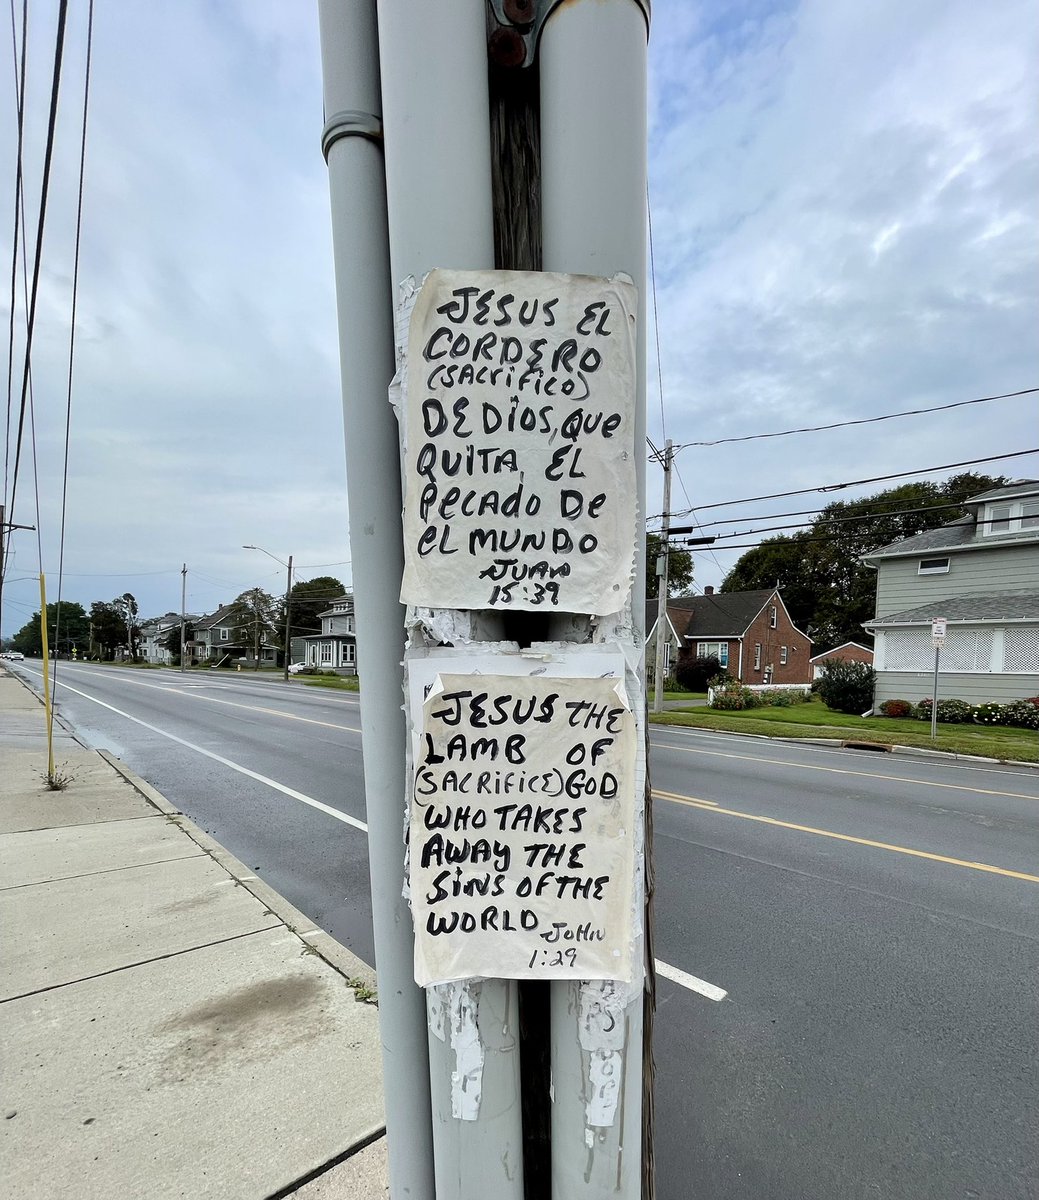 JESUS EL
CORDERO
(SACRIFICO)
DE DIOS, QUE
QUITA, EL
PECADO DE
EL MUNDO
JUAN
15:39
JESUS THE
LAMB OF
(SACRIFICE) GOD
WHO TAKES
AWAY THE
SINS OF THE
WORLD JOHN
1:29